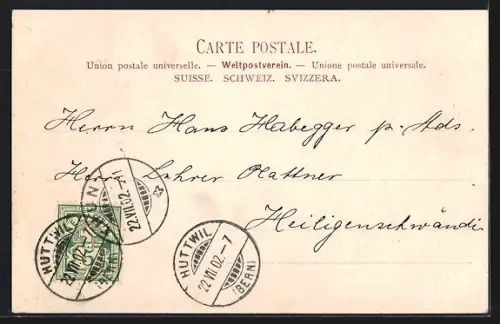 CARTE POSTALE.
Union postale universelle. — Weltpostverein. — Unione postale universale.
SUISSE. SCHWEIZ. SVIZZERA.
Herrn Hans Habegger p. Ads.
Herrn Lehrer Plattner
Heiligenschwändi
THUN
22.VII.02.-11
HUTTWIL
22.VII.02.-7
(BERN)
HUTTWIL
22.VII.02.-7
(BERN)